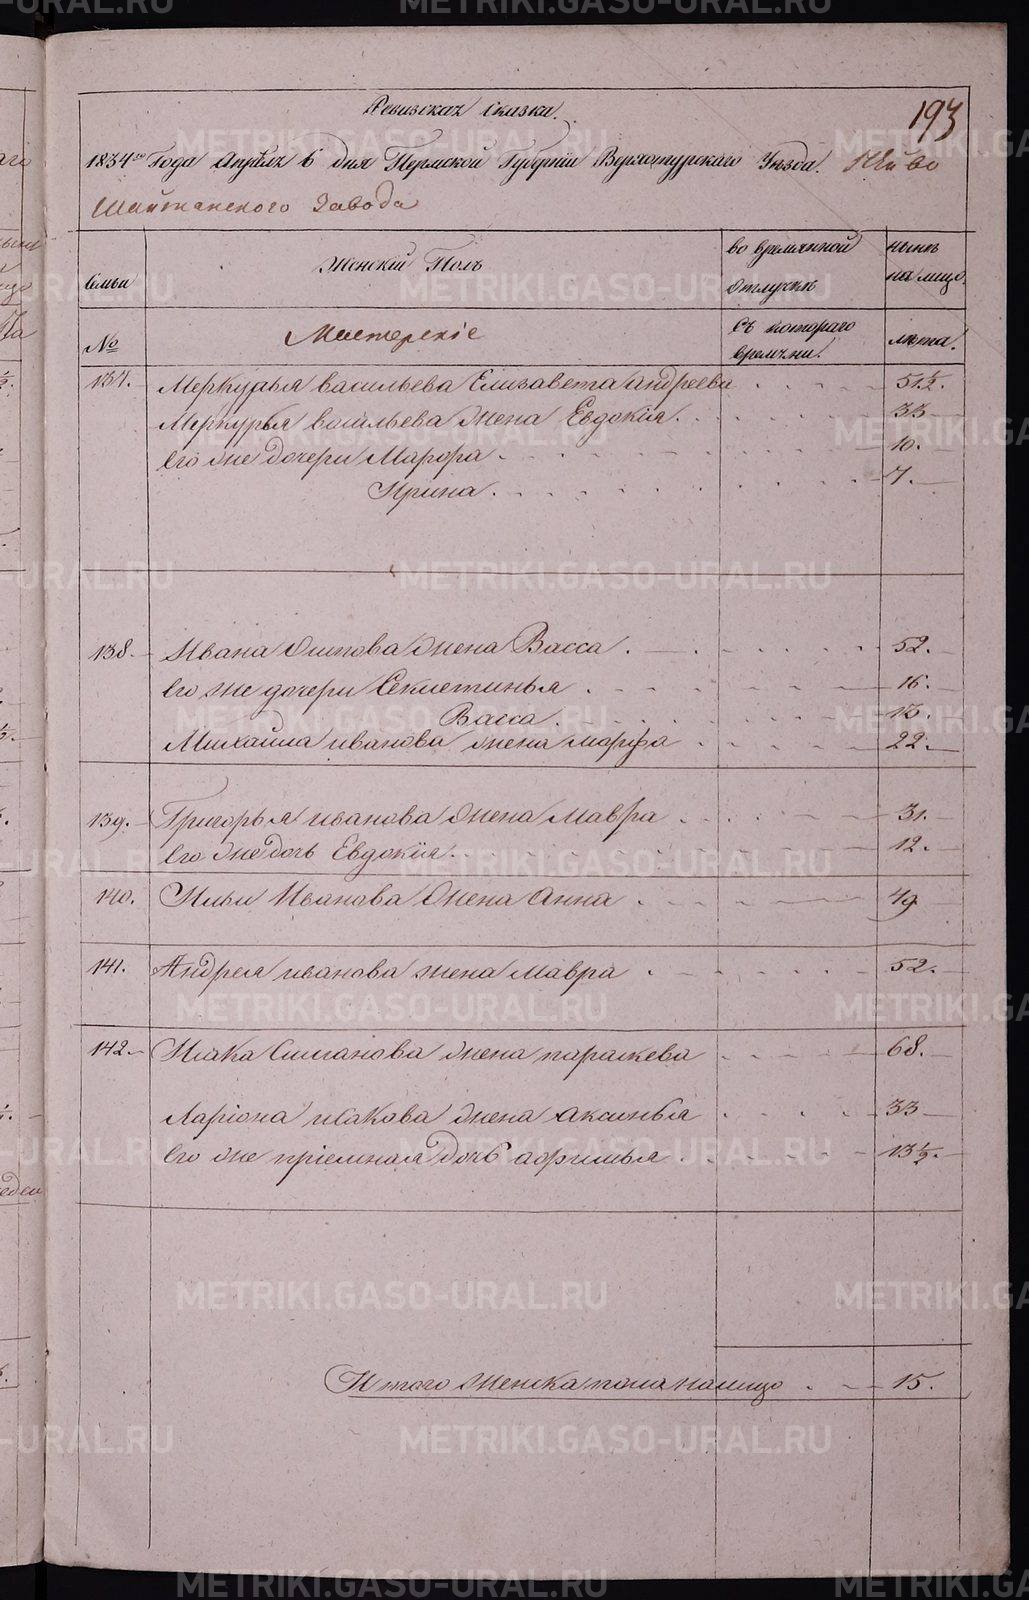 193
Ревизская сказка.
1834го Года Апреля 6 дня Пермской Губернiи Верхотурского Уезда. Нейво
Шайтанского Завода
Семьи
Женскiй Полъ
во времянной отлучкѣ
нынѣ на лицо.
№
Мастерскiе
Съ котораго времѧни.
лѣта.
137. Меркурья васильева Елизавета андреева 51½.
Меркурья васильева жена Евдокiя. 33
Его же дочери Марфа 10.
Ирина. 7.
138. Ивана Осипова жена Васса. 52.
Его же дочери Секлетинья 16.
Васса. 13.
Михайла иванова жена марфа 22.
139. Григорья иванова жена мавра 31.
Его же дочь Евдокiя. 12.
140. Ильи Иванова жена анна 49
141. Андрея иванова жена мавра 52.
142. Исака Симанова жена парасковья 68.
Ларiона исакова жена аксинья 33
Его же прiемная дочь афимья. 13½.
Итого женска пола налицо 15.
METRIKI.GASO-URAL.RU